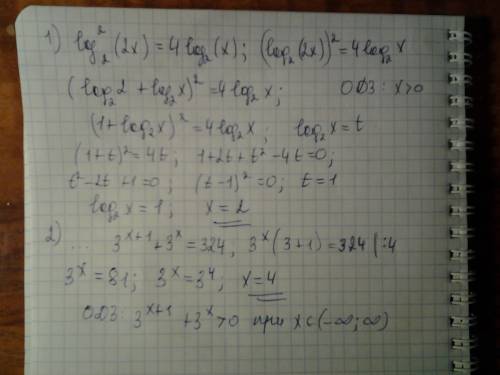 1) log₂²(2x) = 4log₂(x); (log₂(2x))² = 4log₂x
(log₂2 + log₂x)² = 4log₂x; ОДЗ: x>0
(1+log₂x)² = 4log₂x; log₂x = t
(1+t)² = 4t; 1+2t+t²-4t=0;
t²-2t+1=0; (t-1)²=0; t=1
log₂x = 1; x = 2
2) ... 3ˣ⁺¹+3ˣ=324, 3ˣ(3+1)=324 |:4
3ˣ = 81; 3ˣ=3⁴, x=4
ОДЗ: 3ˣ⁺¹+3ˣ>0 при x∈(-∞;∞)